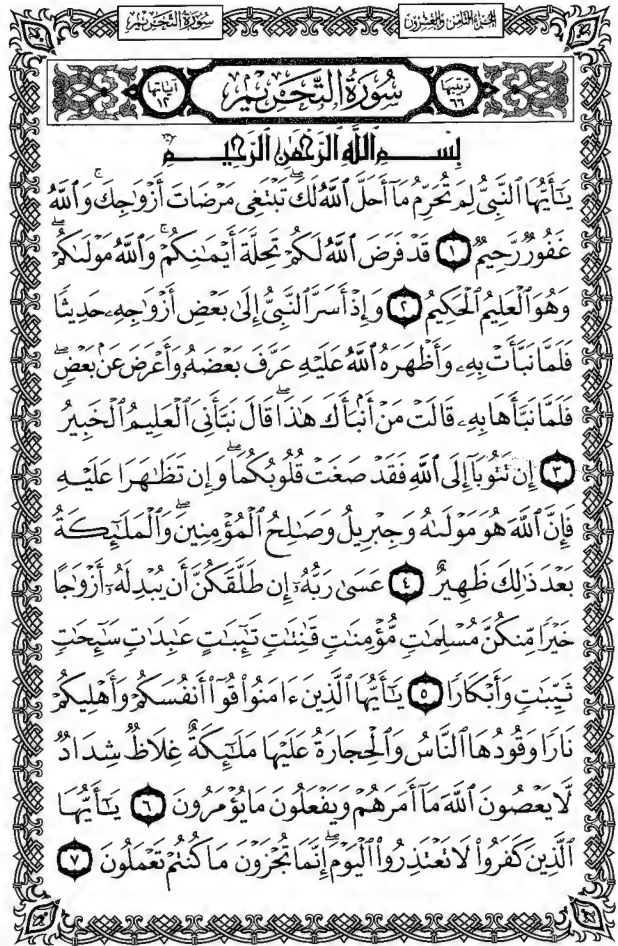 الجزء الثامن والعشرون
سورة التحريم
ترتيبها
٦٦
سُورَةُ التَّحْرِيمِ
آياتها
١٢
بِسْمِ اللَّهِ الرَّحْمَٰنِ الرَّحِيمِ
يَٰٓأَيُّهَا ٱلنَّبِيُّ لِمَ تُحَرِّمُ مَآ أَحَلَّ ٱللَّهُ لَكَۖ تَبْتَغِي مَرْضَاتَ أَزْوَٰجِكَۚ وَٱللَّهُ
غَفُورٌ رَّحِيمٌ ١ قَدْ فَرَضَ ٱللَّهُ لَكُمْ تَحِلَّةَ أَيْمَٰنِكُمْۚ وَٱللَّهُ مَوْلَىٰكُمْۖ
وَهُوَ ٱلْعَلِيمُ ٱلْحَكِيمُ ٢ وَإِذْ أَسَرَّ ٱلنَّبِيُّ إِلَىٰ بَعْضِ أَزْوَٰجِهِۦ حَدِيثًا
فَلَمَّا نَبَّأَتْ بِهِۦ وَأَظْهَرَهُ ٱللَّهُ عَلَيْهِ عَرَّفَ بَعْضَهُۥ وَأَعْرَضَ عَنۢ بَعْضٍۖ
فَلَمَّا نَبَّأَهَا بِهِۦ قَالَتْ مَنْ أَنۢبَأَكَ هَٰذَاۖ قَالَ نَبَّأَنِيَ ٱلْعَلِيمُ ٱلْخَبِيرُ
٣ إِن تَتُوبَآ إِلَى ٱللَّهِ فَقَدْ صَغَتْ قُلُوبُكُمَاۖ وَإِن تَظَٰهَرَا عَلَيْهِ
فَإِنَّ ٱللَّهَ هُوَ مَوْلَىٰهُ وَجِبْرِيلُ وَصَٰلِحُ ٱلْمُؤْمِنِينَۖ وَٱلْمَلَٰٓئِكَةُ
بَعْدَ ذَٰلِكَ ظَهِيرٌ ٤ عَسَىٰ رَبُّهُۥٓ إِن طَلَّقَكُنَّ أَن يُبْدِلَهُۥٓ أَزْوَٰجًا
خَيْرًا مِّنكُنَّ مُسْلِمَٰتٍ مُّؤْمِنَٰتٍ قَٰنِتَٰتٍ تَٰٓئِبَٰتٍ عَٰبِدَٰتٍ سَٰٓئِحَٰتٍ
ثَيِّبَٰتٍ وَأَبْكَارًا ٥ يَٰٓأَيُّهَا ٱلَّذِينَ ءَامَنُوا۟ قُوٓا۟ أَنفُسَكُمْ وَأَهْلِيكُمْ
نَارًا وَقُودُهَا ٱلنَّاسُ وَٱلْحِجَارَةُ عَلَيْهَا مَلَٰٓئِكَةٌ غِلَاظٌ شِدَادٌ
لَّا يَعْصُونَ ٱللَّهَ مَآ أَمَرَهُمْ وَيَفْعَلُونَ مَا يُؤْمَرُونَ ٦ يَٰٓأَيُّهَا
ٱلَّذِينَ كَفَرُوا۟ لَا تَعْتَذِرُوا۟ ٱلْيَوْمَۖ إِنَّمَا تُجْزَوْنَ مَا كُنتُمْ تَعْمَلُونَ ٧